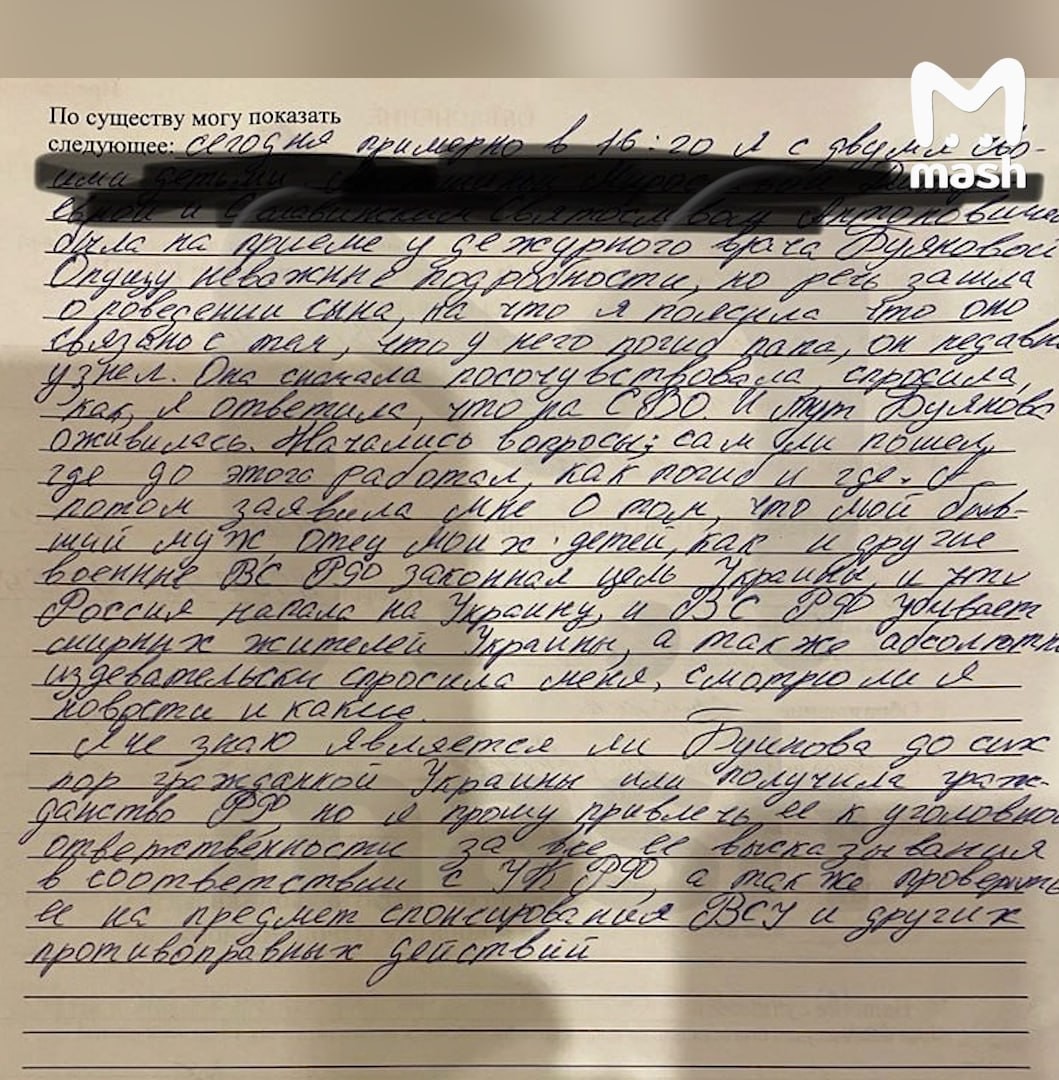 mash
По существу могу показать
следующее: сегодня примерно в 16:20 я с двумя сво-
ими детьми
евной и Святославом Антонович
была на приеме у дежурного врача Буяновой
Опущу неважные подробности, но речь зашла
о поведении сына, на что я пояснила что оно
связано с тем, что у него погиб папа, он недавн
узнал. Она сначала посочувствовала, спросила,
как, я ответила, что на СВО. И тут Буянова
оживилась. Начались вопросы: сам ли пошел,
где до этого работал, как погиб и где. А
потом заявила мне о том, что мой быв-
ший муж, отец моих детей, как и другие
военные ВС РФ законная цель Украины, и что
Россия напала на Украину, и ВС РФ убивает
мирных жителей Украины, а также абсолютн
издевательски спросила меня, смотрю ли я
новости и какие.
Я не знаю является ли Буянова до сих
пор гражданкой Украины или получила граж-
данство РФ но я прошу привлечь ее к уголовно
ответственности за все ее высказывания
в соответствии с УК РФ, а также проверить
ее на предмет спонсирования ВСУ и других
противоправных действий